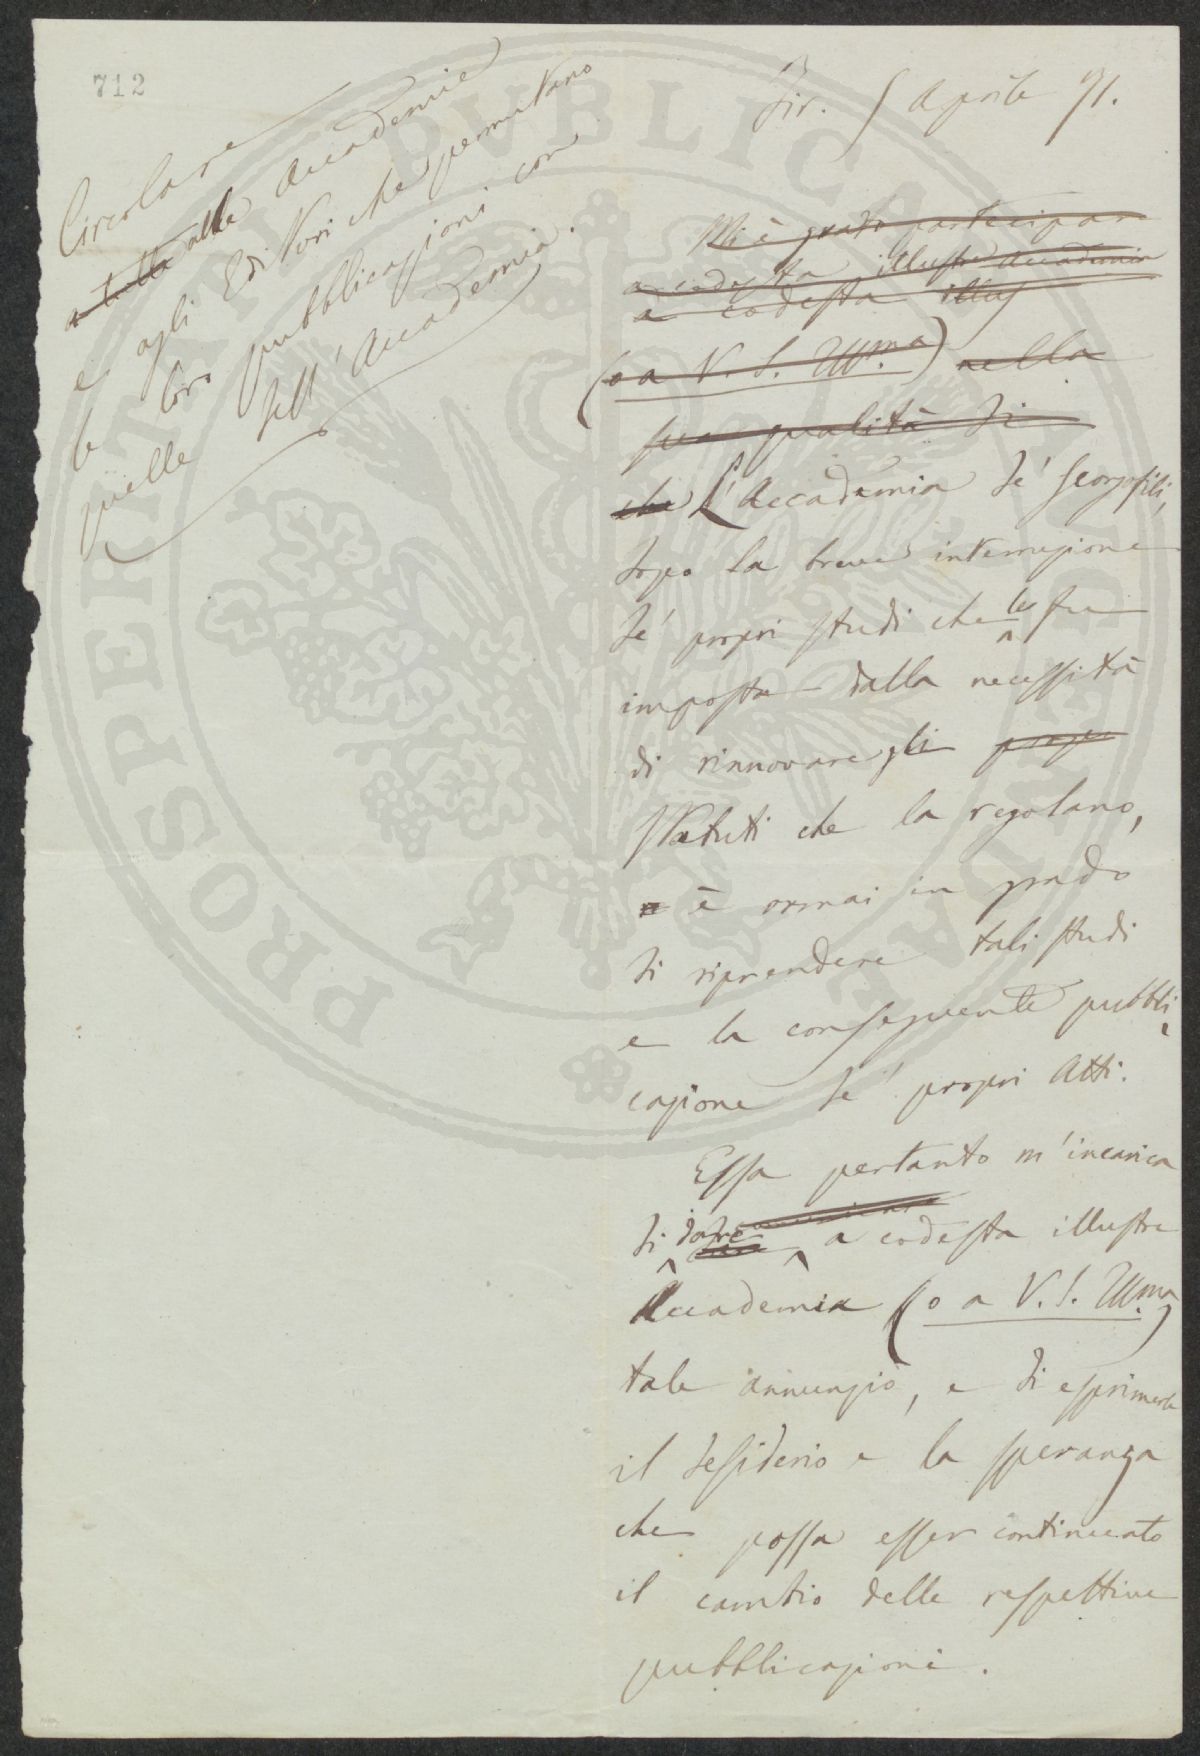 712
Circolare
a tutte alle Accademie
e agli Editori che permutano
le loro pubblicazioni con
quelle dell'Accademia.
Fir. 5 Aprile 71.
Mi è grato partecipar
a codesta illustre Accademia
a codesta illus
(o a V. S. Ill.ma) nella
sua qualità di
che L'Accademia de' Georgofili,
dopo la breve interruzione
de' propri studi che le fu
imposta dalla necessità
di rinnovare gli propri
Statuti che la regolano,
è ormai in grado
di riprendere tali studi
e la conseguente pubbli
cazione de' propri Atti.
Essa pertanto m'incarica
di dare a codesta illustre
Accademia (o a V. S. Ill.ma)
tale annunzio, e di esprimerle
il desiderio e la speranza
che possa esser continuato
il cambio delle respettive
pubblicazioni.
PROSPERITATI PVBLICAE AVGENDAE